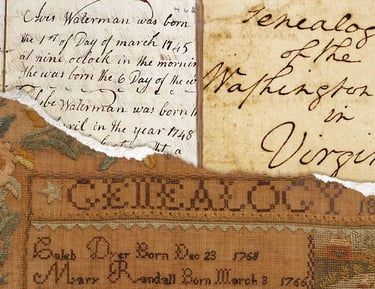 was born
the 1st of Day of march 1745
at nine oclock in the mornin
She was born the 6 Day of the w
Waterman was born
in the year 1748
Genealog
of the
Washington
in
Virgin
GENEALOGY
Caleb Dyer Born Dec 23 1768
Mary Randall Born March 3 1765